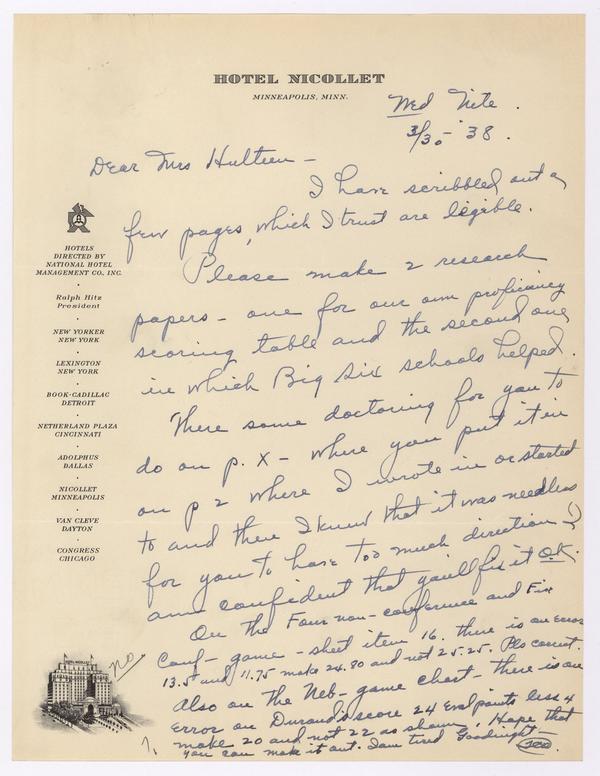 HOTEL NICOLLET
MINNEAPOLIS, MINN.
Wed Nite.
3/30-'38.
Dear Mrs Hulteen-
I have scribbled out a
few pages, which I trust are legible.
Please make 2 research
papers - one for our own proficiency
scoring table and the second one
in which Big Six schools helped.
There some doctoring for you to
do on p. X - where you put it in
on p 2 where I wrote in or started
to and then I knew that it was needless
for you to have too much direction I
am confident that you'll fix it O.K.
On the Four non-conference and Fix
Conf- game - sheet item 16. there is an error
13.5 and 11.75 make 24.80 and not 25.25. Pls correct.
Also on the Neb- game chart - there is one
error on Durand's score 24 Eval points less 4
make 20 and not 22 as shown. Hope that
you can make it out. I am tired Goodnight-
HOTELS
DIRECTED BY
NATIONAL HOTEL
MANAGEMENT CO. INC.
Ralph Hitz
President
NEW YORKER
NEW YORK
LEXINGTON
NEW YORK
BOOK-CADILLAC
DETROIT
NETHERLAND PLAZA
CINCINNATI
ADOLPHUS
DALLAS
NICOLLET
MINNEAPOLIS
VAN CLEVE
DAYTON
CONGRESS
CHICAGO
HOTEL NICOLLET
no
1.